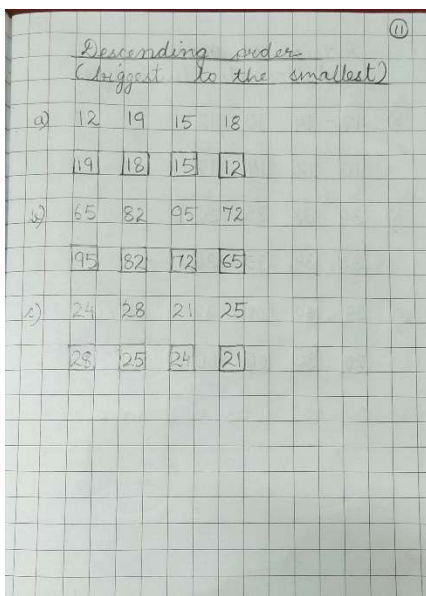 11
Descending order
(biggest to the smallest)
a) 12 19 15 18
19 18 15 12
b) 65 82 95 72
95 82 72 65
c) 24 28 21 25
28 25 24 21